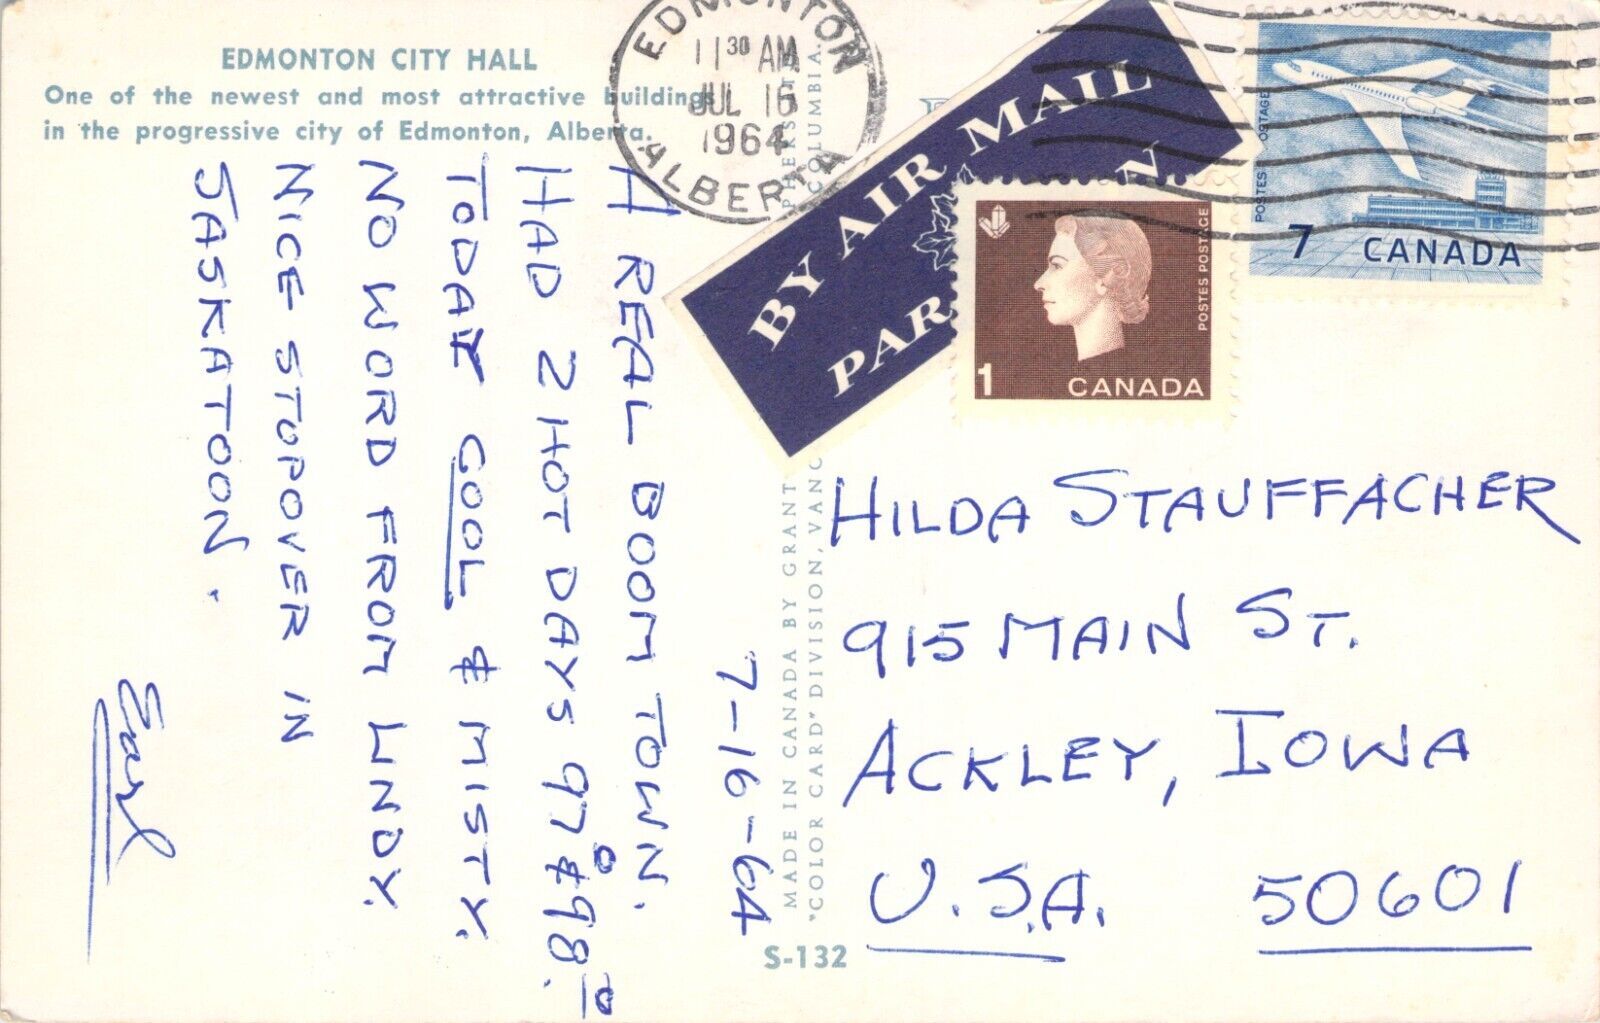 EDMONTON CITY HALL
One of the newest and most attractive buildings
in the progressive city of Edmonton, Alberta.
EDMONTON
11 30 AM
JUL 16
1964
ALBERTA
BY AIR MAIL
PAR
N
POSTES POSTAGE
1 CANADA
POSTES POSTAGE
7 CANADA
7-16-64
A REAL BOOM TOWN.
HAD 2 HOT DAYS 97° & 98°.
TODAY COOL & MISTY.
NO WORD FROM LINDY.
NICE STOPOVER IN
SASKATOON.
Earl
MADE IN CANADA BY GRANT
"COLOR CARD" DIVISION, VANC
COLUMBIA.
S-132
HILDA STAUFFACHER
915 MAIN ST.
ACKLEY, IOWA
U.S.A. 50601